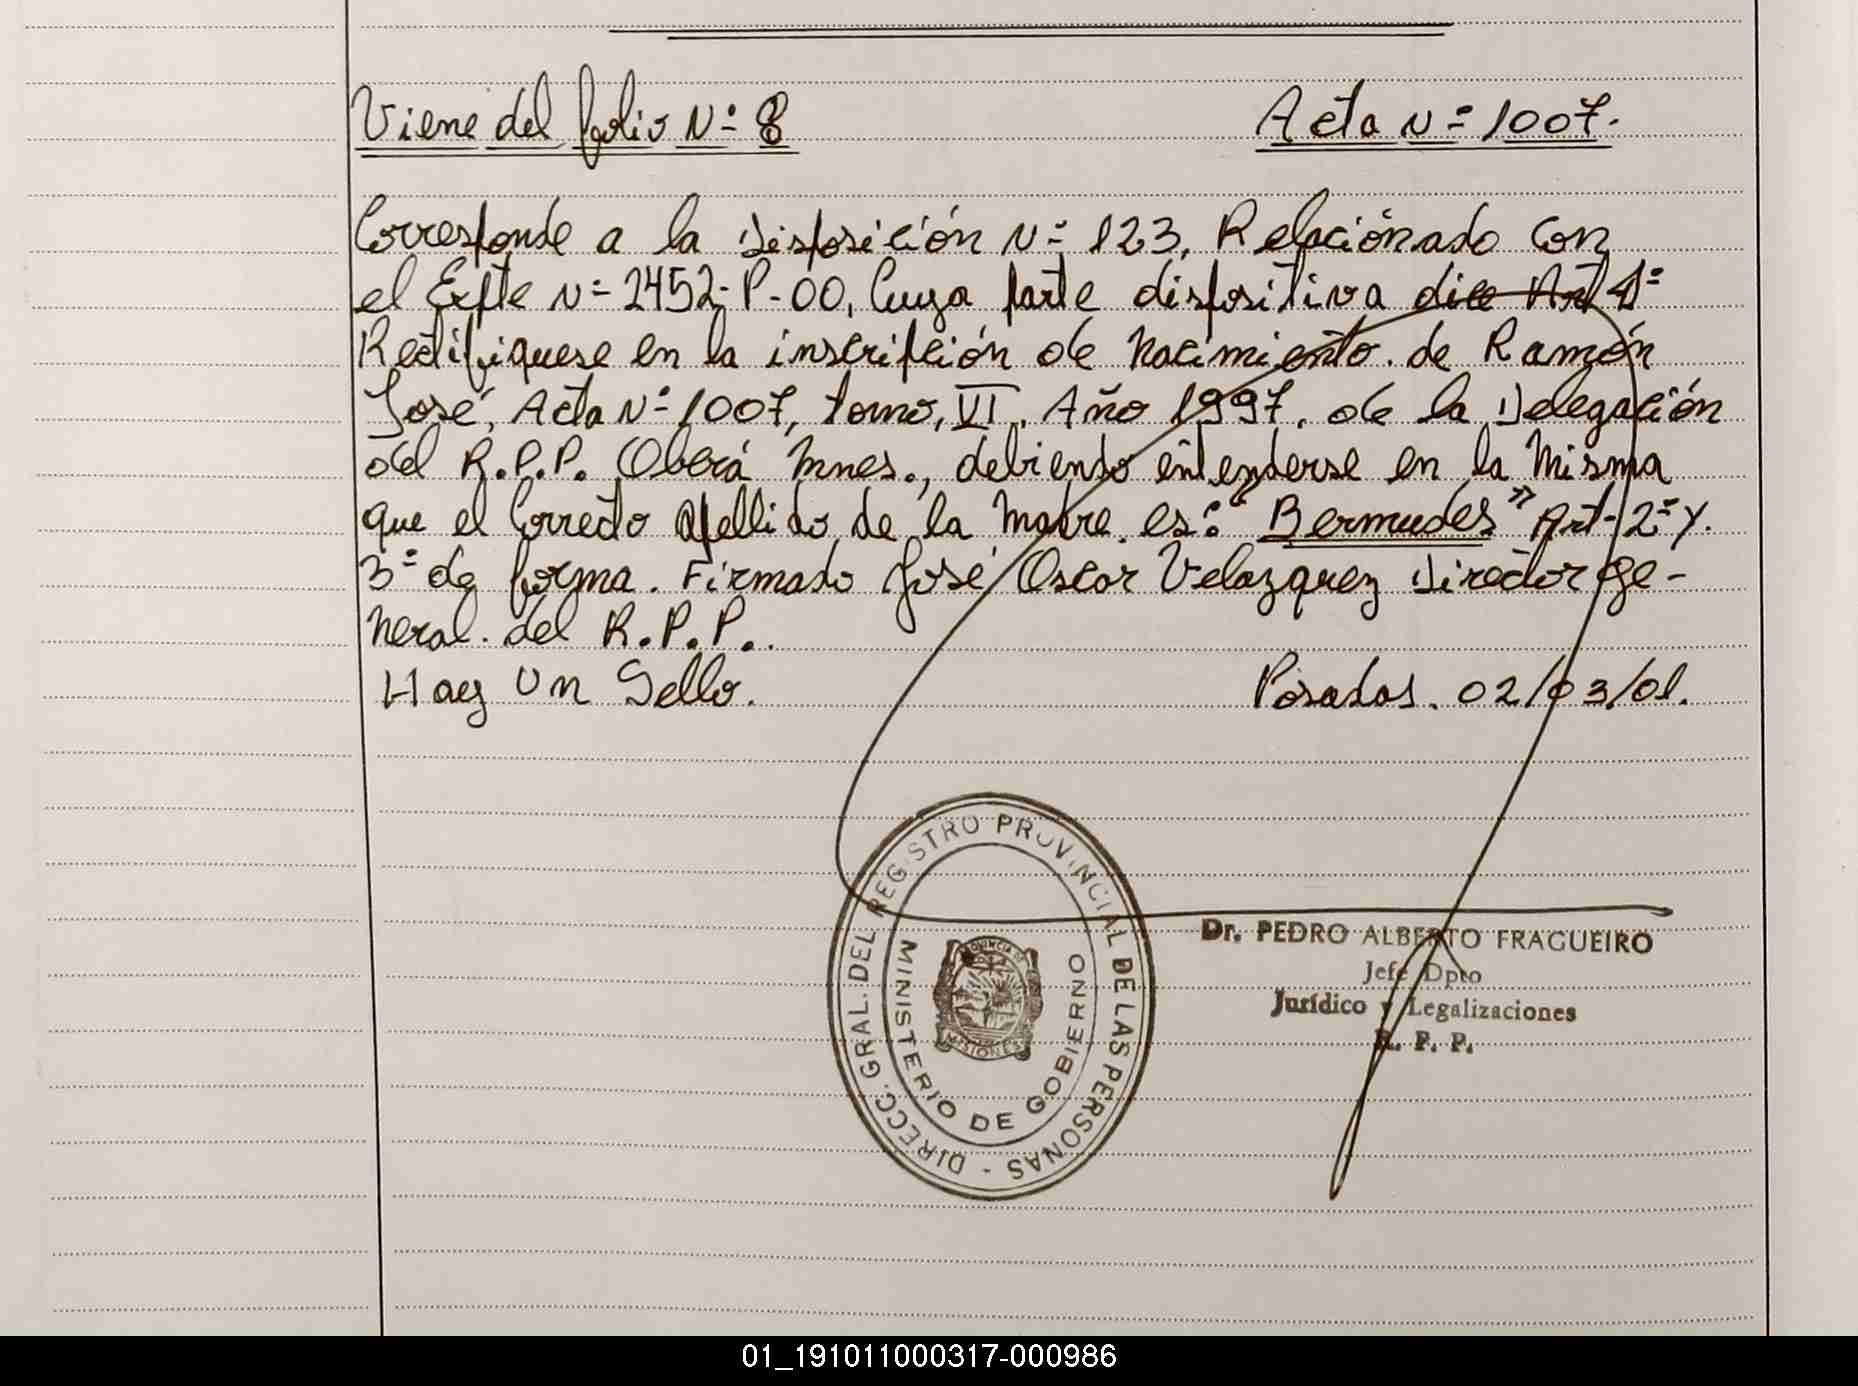 Viene del folio N= 8
Acta N= 1007.
Corresponde a la Disposición N= 123, Relaciónado con
el Expte N= 2452-P-00, Cuya parte dispositiva dice Art 1=
Rectifiquese en la inscripción de Nacimiento. de Ramón
José, Acta N= 1007, tomo, VI, Año 1997, de la Delegación
del R.P.P. Oberá Mnes., debiendo entenderse en la Misma
que el Correcto Apellido de la Madre es: "Bermudes" Art-2= y.
3= de forma. Firmado José Oscar Velazquez Director Ge-
neral. del R.P.P.
Hay Un Sello.
Posadas. 02/03/01.
DIRECC. GRAL. DEL REGISTRO PROVINCIAL DE LAS PERSONAS -
MINISTERIO DE GOBIERNO
PROVINCIA DE
MISIONES
Dr. PEDRO ALBERTO FRAGUEIRO
Jefe Dpto
Jurídico y Legalizaciones
R. P. P.
01_191011000317-000986